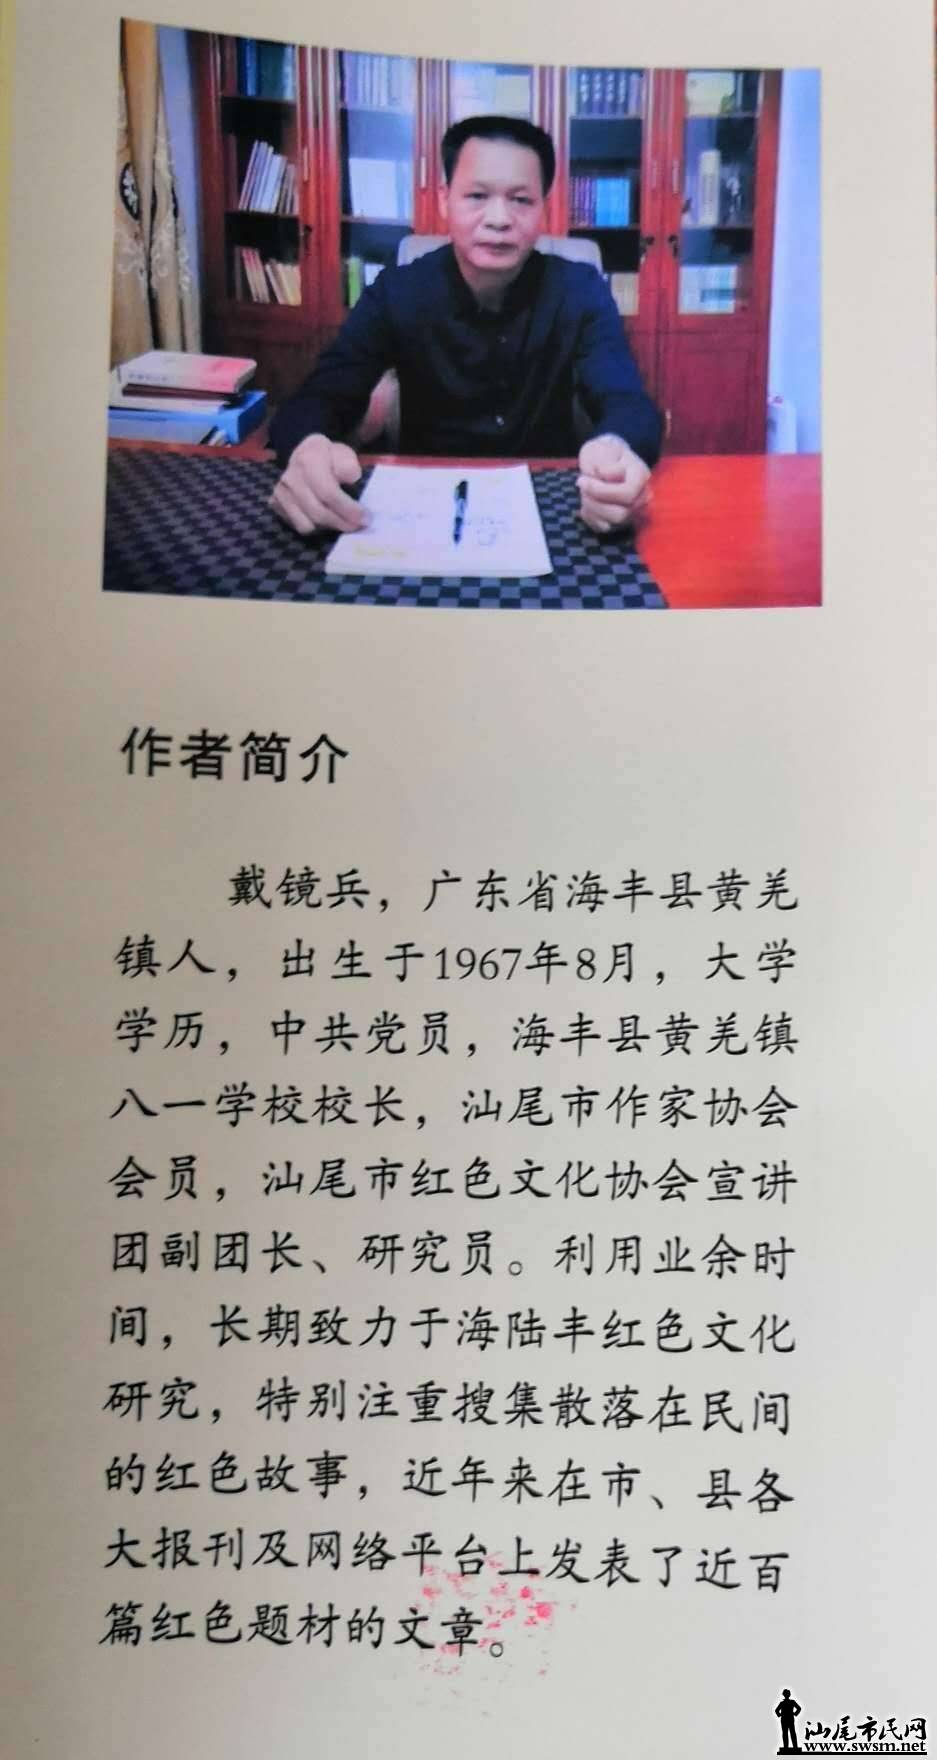 作者简介
戴镜兵，广东省海丰县黄羌
镇人，出生于1967年8月，大学
学历，中共党员，海丰县黄羌镇
八一学校校长，汕尾市作家协会
会员，汕尾市红色文化协会宣讲
团副团长、研究员。利用业余时
间，长期致力于海陆丰红色文化
研究，特别注重搜集散落在民间
的红色故事，近年来在市、县各
大报刊及网络平台上发表了近百
篇红色题材的文章。
汕尾市民网
www.swsm.net